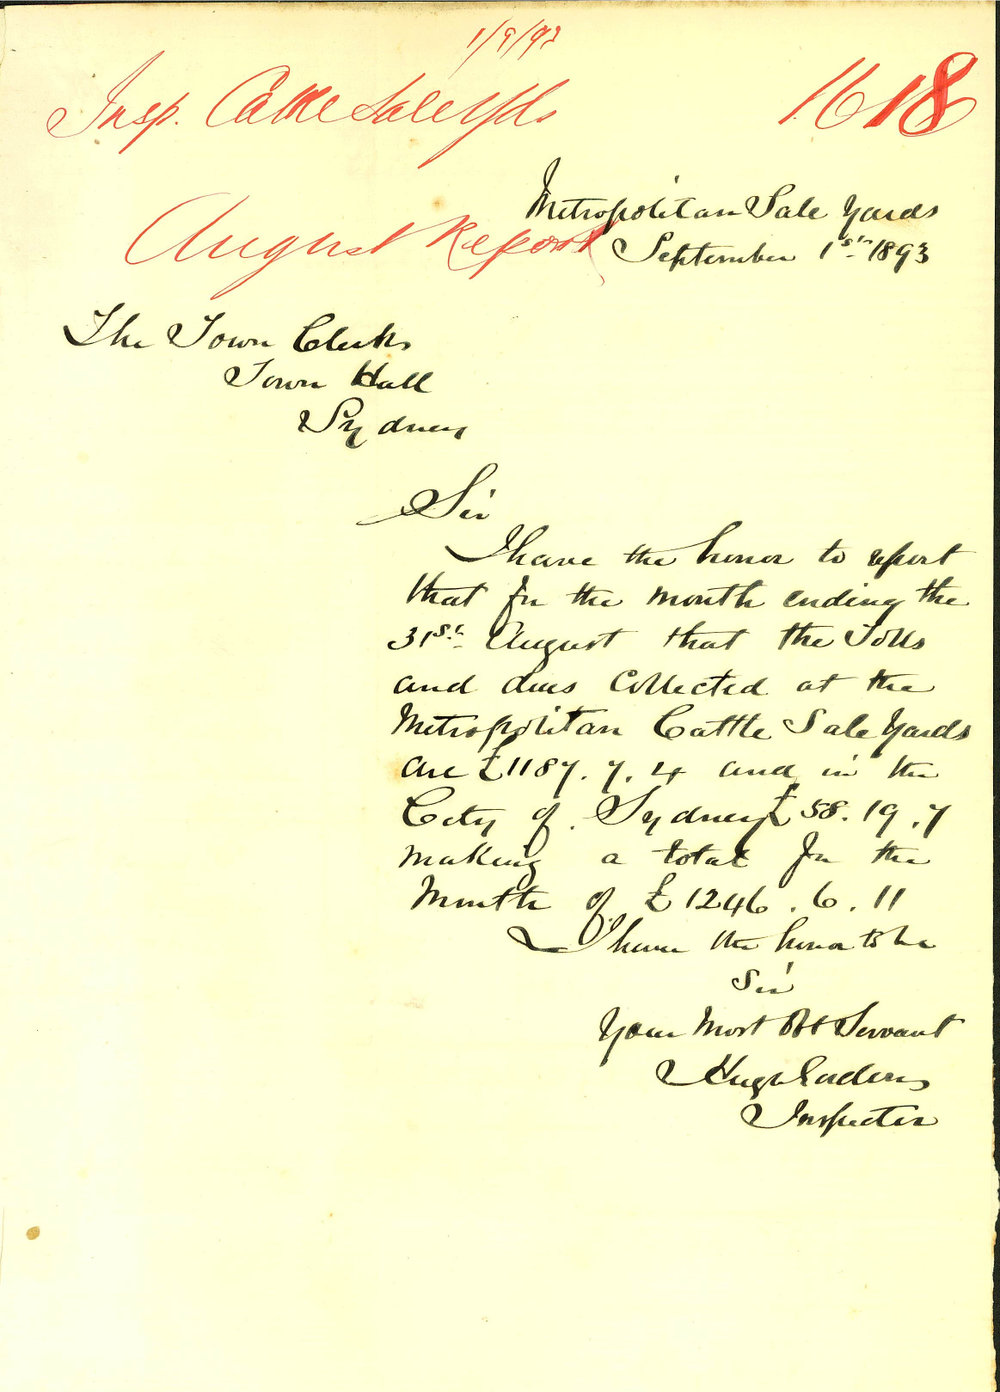 1/9/93
Insp. Cattle Sale Yds
1618
August Report
Metropolitan Sale Yards
September 1st 1893
The Town Clerk
Town Hall
Sydney
Sir
I have the honor to report
that for the month ending the
31st August that the Tolls
and dues collected at the
Metropolitan Cattle Sale Yards
are £1187.7.4 and in the
City of Sydney £58.19.7
making a total for the
Month of £1246.6.11
I have the honor to be
Sir
Your Most Obt Servant
Hugh
Inspector